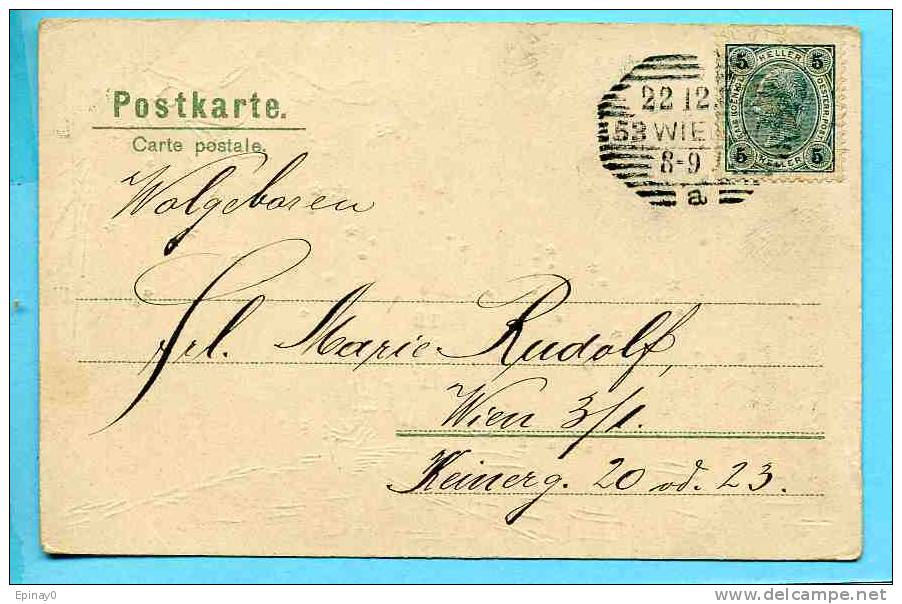 Postkarte.
Carte postale.
22 12
53 WIE
8-9
a
5 HELLER 5
5 HELLER 5
Wolgeboren
Frl. Marie Rudolf,
Wien 3/1.
Keinerg. 20 od. 23.
Epinay0
www.delcampe.com